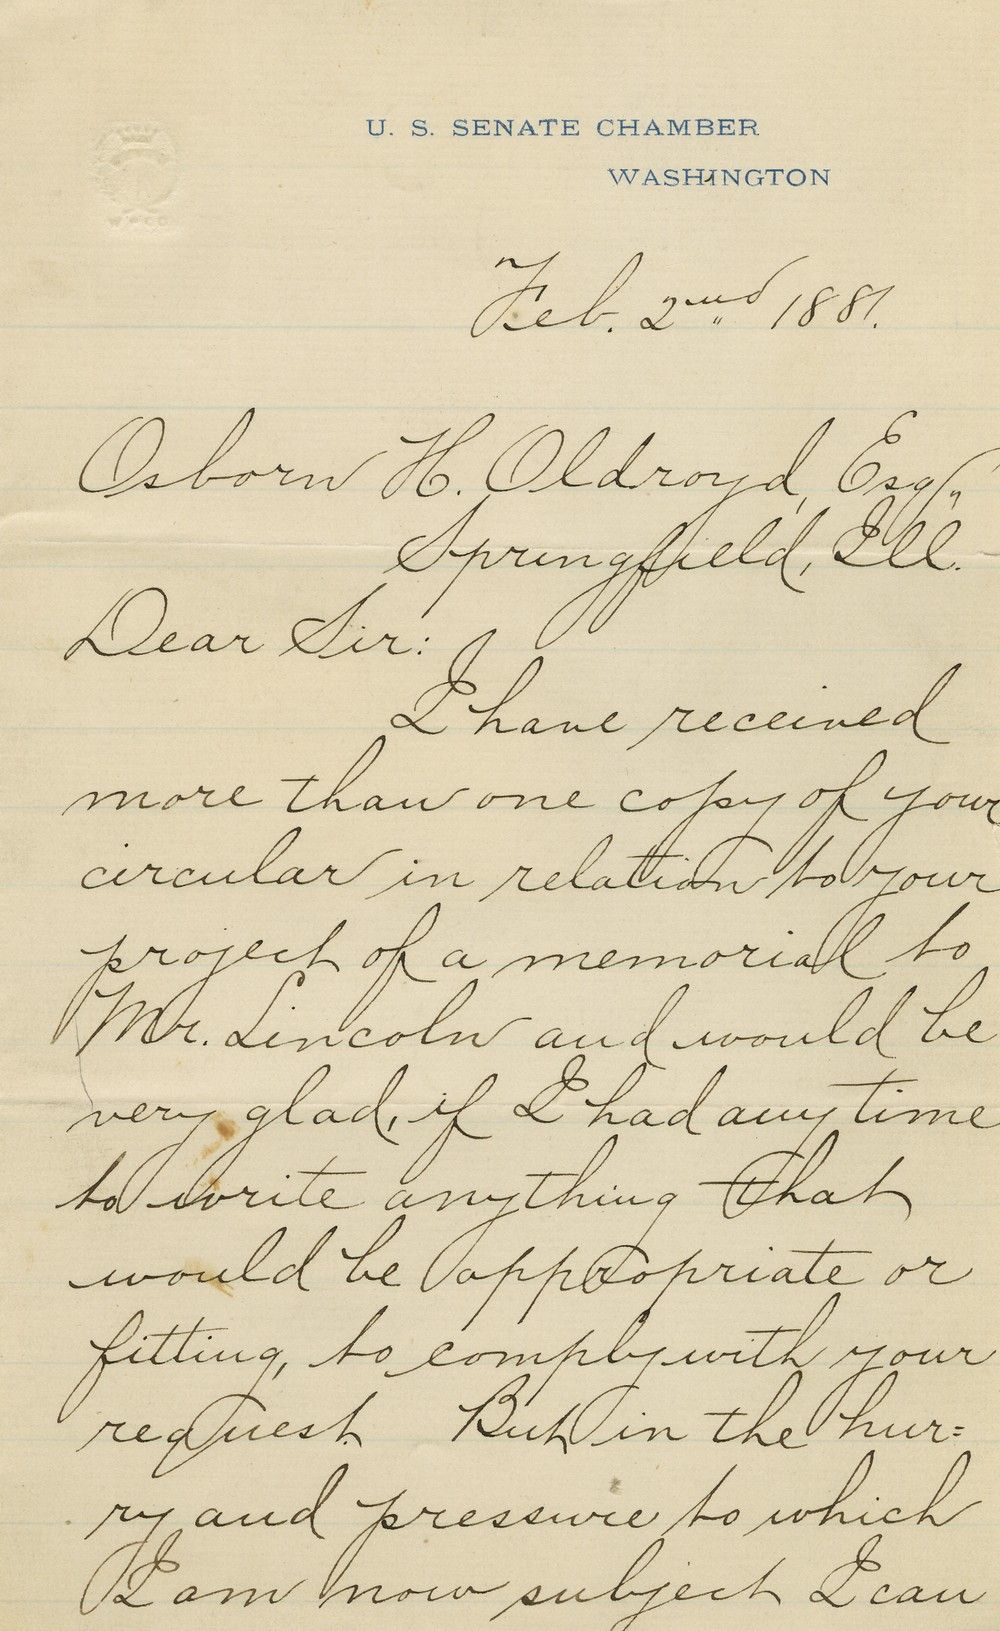 U. S. SENATE CHAMBER
WASHINGTON
Feb. 2nd 1881.
Osborn H. Oldroyd, Esq.,
Springfield, Ill.
Dear Sir:
I have received
more than one copy of your
circular in relation to your
project of a memorial to
Mr. Lincoln and would be
very glad, if I had any time
to write anything that
would be appropriate or
fitting, to comply with your
request. But in the hur=
ry and pressure to which
I am now subject I can